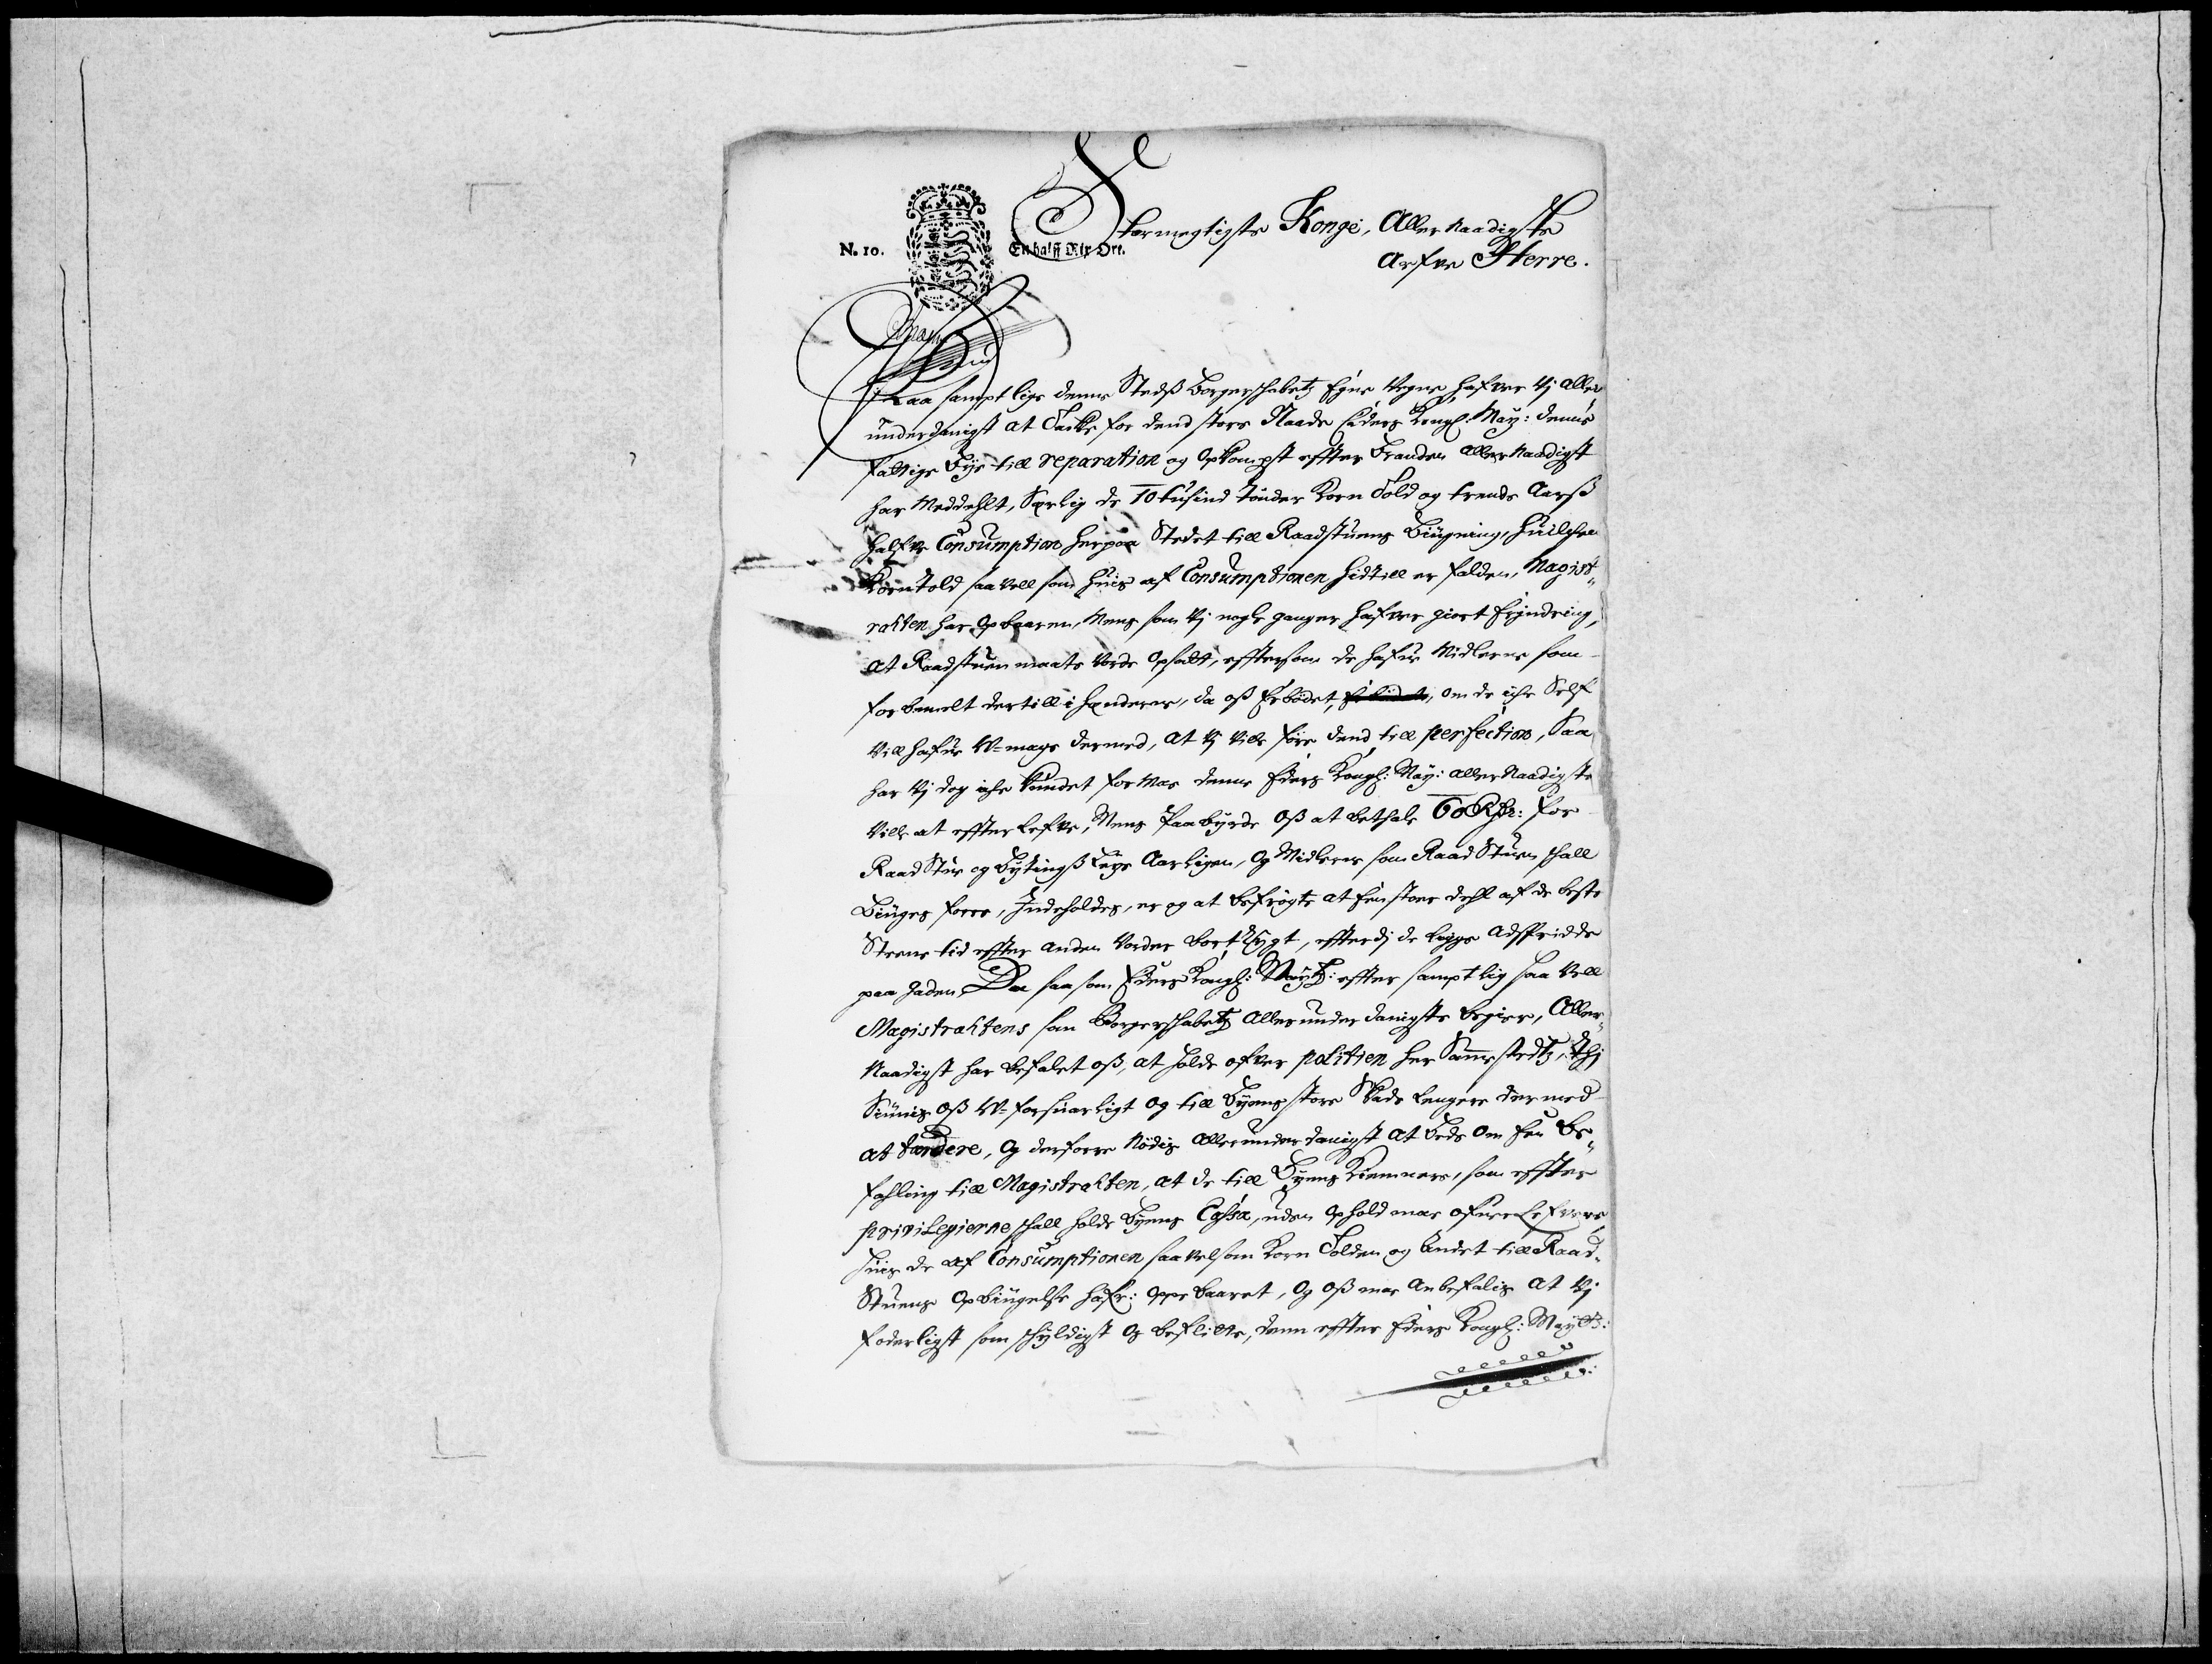 Stormegtigste Konge, Aller Naadigste
N. 10. En halff Rix Ort.
Arfve Herre.
Paa samptlige denne Stedß Borgerskabetz Egne Vegne, hafver Vj aller
underdanigst at Tacke for dend store Naade Eders Kongl: May: denne
fattige Bye till reparation og Opkompst effter Branden allernaadigst
har Meddehlt, Særlig de To tusind Tønder Korn Told og trende Aarß
halfve Consumption herpaa Stedet till Raadstuens Biugning, huilchen
Korn told saa vell som huis af Consumptionen hidtill er falden, Magist-
rahten har Opbaaren, Mens som Vj nogle ganger hafver giort Erindring,
at Raadstuen maate Vorde Opsadt, efftersom de hafuer Midlerne som
forbemelt dertill i henderne, da oß Erbødet, om de iche Self
Vill hafue U-mage dermed, at Vj Ville føre dend till perfection, Saa
har Vj dog iche Kundet formaae denne Eders Kongl: May: aller Naadigste
Ville at effterlefve, Mens Paabyrde Oß at bethale 60 Rdr: for
Raad Stue og Bytingß Leye Aarligen, Og Midlerne som Raad Stuen skall
Biuges forre, Indeholdes, er og at befrøgte at Een stoer dehl af de beste
Steene tid effter anden Vorder bort rygt, efterdj de ligge adspridde
paa gaden, Da saasom Eders Kongl: Maytz: effter samptlig saa Vell
Magistrahtens som Borgerskabetz Allerunderdanigste begier, Aller-
Naadigst har befalet oß, at holde ofver politien her Sammestedtz, Thj
Siunis Oß U-forsuarligt og till Byens store Skade lengere dermed
at tardere, Og derforre Nødis Allerunderdanigst at Bede Om Een be-
fahling till Magistrahten, at de till Byens Kiemnere, som effter
privilegierne skall holde Byens Cassa, uden Ophold maae ofuerlefvere
huis de af Consumptionen saavelsom Korn Tolden og Andet till Raad-
Stuens Opbiugelse hafr: Oppebaaret, Og Oß maae anbefalis at Vj
foderligst som skyldigst Og beflitte, denn effter Eders Kongl: Maytz: